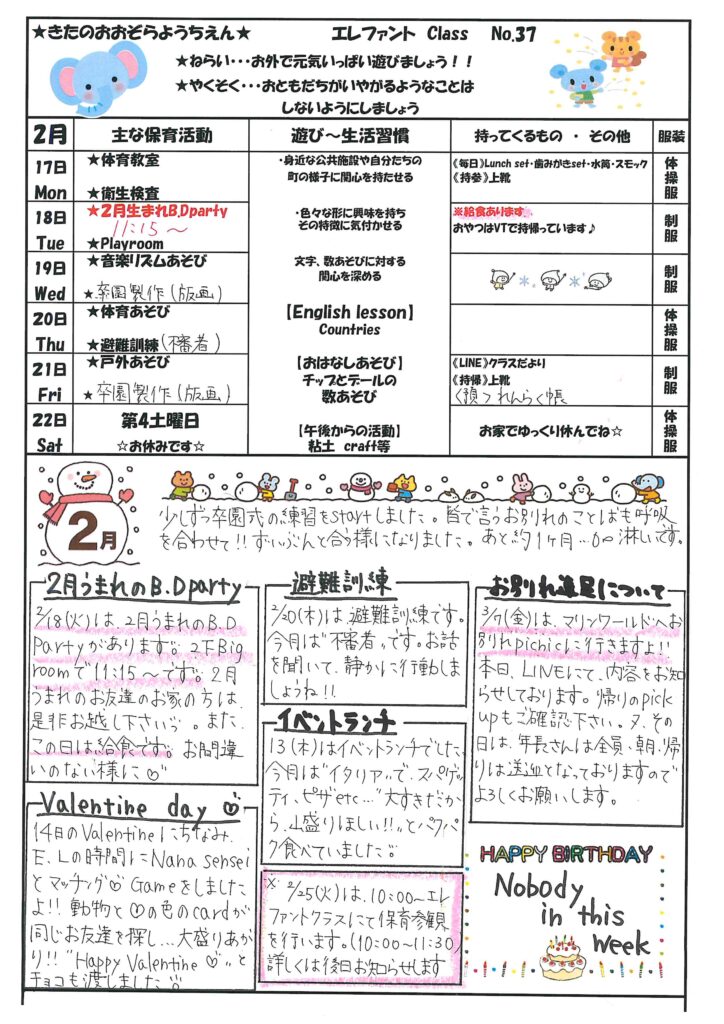 ★きたのおおぞらようちえん★　エレファント Class　No.37
★ねらい・・・お外で元気いっぱい遊びましょう！！
★やくそく・・・おともだちがいやがるようなことは
しないようにしましょう
2月　主な保育活動　遊び～生活習慣　持ってくるもの ・ その他　服装
17日 Mon
★体育教室
★衛生検査
・身近な公共施設や自分たちの
町の様子に関心を持たせる
《毎日》Lunch set・歯みがきset・水筒・スモック
《持参》上靴
体操服
18日 Tue
★2月生まれB.Dparty
11:15～
★Playroom
・色々な形に興味を持ち
その特徴に気付かせる
※給食あります
おやつはVTで持帰っています♪
制服
19日 Wed
★音楽リズムあそび
★卒園製作(版画)
文字、数あそびに対する
関心を深める
制服
20日 Thu
★体育あそび
★避難訓練(不審者)
【English lesson】
Countries
体操服
21日 Fri
★戸外あそび
★卒園製作(版画)
【おはなしあそび】
チップとデールの
数あそび
《LINE》クラスだより
《持帰》上靴
〈預〉れんらく帳
制服
22日 Sat
第4土曜日
☆お休みです☆
【午後からの活動】
粘土 craft等
お家でゆっくり休んでね☆
体操服
2月
少しずつ卒園式の練習をstartしました。皆で言うお別れのことばも呼吸
を合わせて!!ずいぶんと合う様になりました。あと約1ヶ月…淋しいです。
2月うまれのB.Dparty
2/18(火)は、2月うまれのB.D
Partyがあります。2下Big
roomで11:15～です。2月
うまれのお友達のお家の方は、
是非お越し下さいっ。また、
この日は給食です。お間違
いのない様に♡
避難訓練
2/20(木)は避難訓練です。
今月は"不審者"です。お話
を聞いて、静かに行動しま
しょうね!!
イベントランチ
13(木)はイベントランチでした。
今月は"イタリア"で、スパゲッ
ティ、ピザetc…"大すきだか
ら、山盛りほしい!!"とパクパ
ク食べていました
お別れ遠足について
3/7(金)は、マリンワールドへお
別れpicnicに行きますよ!!
本日、LINEにて、内容をお知
らせしております。帰りのpick
upもご確認下さい。又、その
日は、年長さんは全員、朝、帰
りは送迎となっておりますので
よろしくお願いします。
Valentine day
14日のValentineにちなみ、
E.Lの時間にNana sensei
とマッチング♡Gameをしました
よ!!動物と♡の色のcardが
同じお友達を探し…大盛りあが
り!!"Happy Valentine♡"と
チョコも渡しました
※2/25(火)は、10:00～エレ
ファントクラスにて保育参観
を行います。(10:00～11:30)
詳しくは後日お知らせします
HAPPY BIRTHDAY
Nobody
in this
week